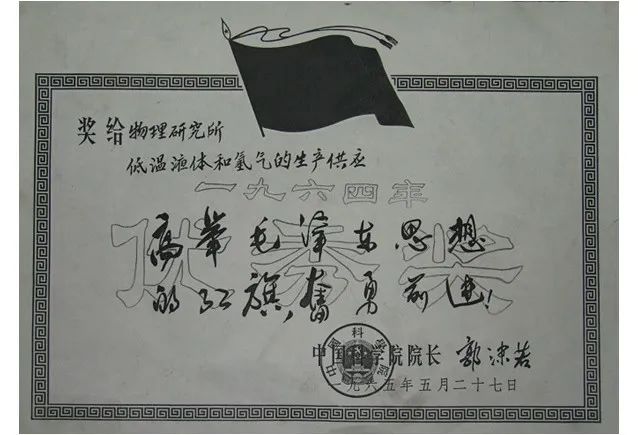 奖给物理研究所
低温液体和氢气的生产供应
一九六四年
优秀奖
高举毛泽东思想
的红旗,奋勇前进!
中国科学院院长 郭沫若
一九六五年五月二十七日
中国科学院